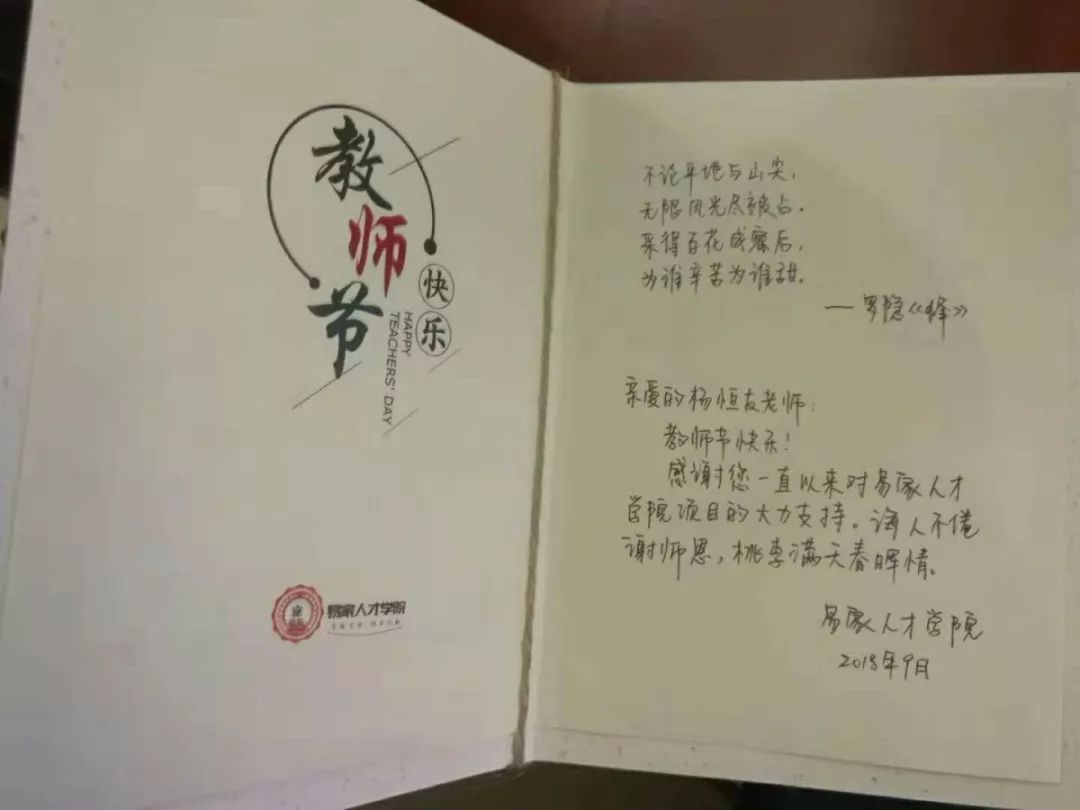 教
师
节
快
乐
HAPPY
TEACHERS' DAY
易家人才学院
不论平地与山尖,
无限风光尽被占。
采得百花成蜜后,
为谁辛苦为谁甜。
—罗隐《蜂》
亲爱的杨恒友老师:
教师节快乐!
感谢您一直以来对易家人才
学院项目的大力支持。诲人不倦
谢师恩,桃李满天春晖情。
易家人才学院
2018年9月